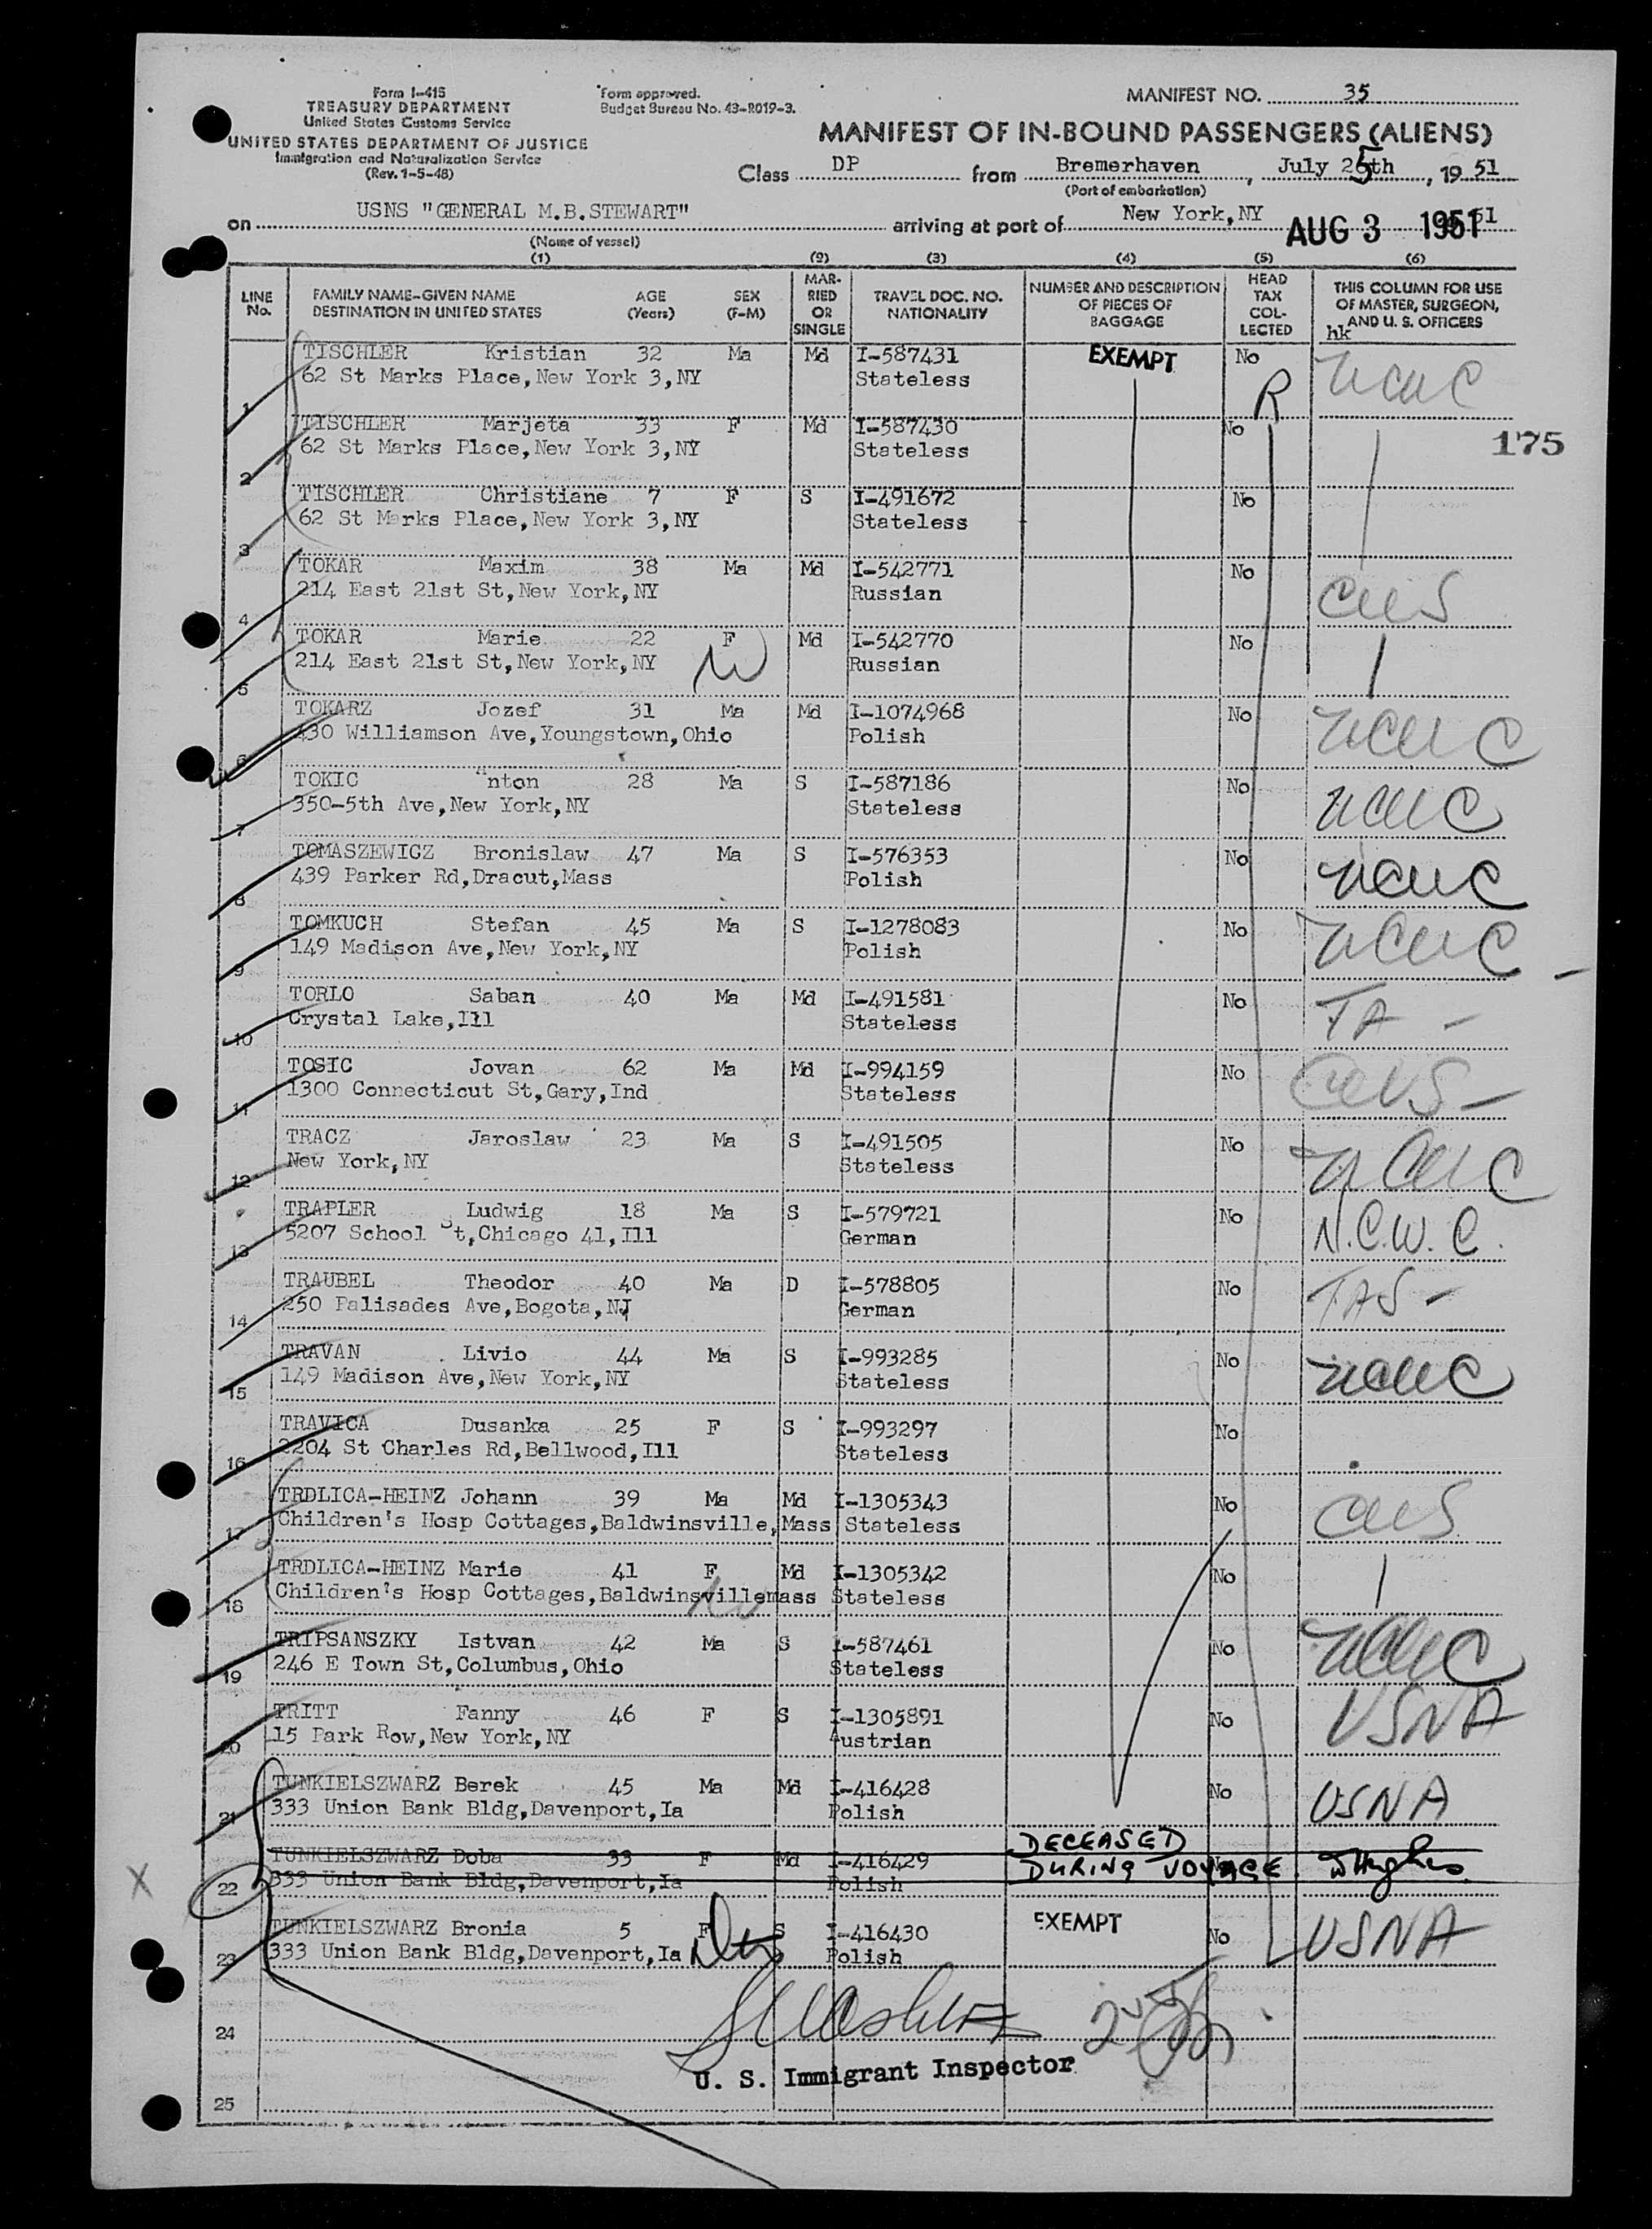 Form I-415
TREASURY DEPARTMENT
United States Customs Service
UNITED STATES DEPARTMENT OF JUSTICE
Immigration and Naturalization Service
(Rev. 1-5-48)
Form approved.
Budget Bureau No. 43-R019-3.
MANIFEST NO. 35
MANIFEST OF IN-BOUND PASSENGERS (ALIENS)
Class DP from Bremerhaven, July 25th, 19 51
(Port of embarkation)
on USNS "GENERAL M.B.STEWART" arriving at port of New York,NY AUG 3 1951 51
(Name of vessel)
(1) (2) (3) (4) (5) (6)
LINE No. FAMILY NAME-GIVEN NAME DESTINATION IN UNITED STATES AGE (Years) SEX (F-M) MARRIED OR SINGLE TRAVEL DOC. NO. NATIONALITY NUMBER AND DESCRIPTION OF PIECES OF BAGGAGE HEAD TAX COLLECTED THIS COLUMN FOR USE OF MASTER, SURGEON, AND U. S. OFFICERS
hk
TISCHLER Kristian 32 Ma Md I-587431 EXEMPT No NCWC
1 62 St Marks Place,New York 3,NY Stateless R
TISCHLER Marjeta 33 F Md I-587430 No
175
2 62 St Marks Place,New York 3,NY Stateless
TISCHLER Christiane 7 F S I-491672 No
3 62 St Marks Place,New York 3,NY Stateless
TOKAR Maxim 38 Ma Md I-542771 No CWS
4 214 East 21st St,New York,NY Russian
TOKAR Marie 22 F Md I-542770 No
5 214 East 21st St,New York,NY Russian
TOKARZ Jozef 31 Ma Md I-1074968 No NCWC
6 430 Williamson Ave,Youngstown,Ohio Polish
TOKIC "nton 28 Ma S I-587186 No NCWC
7 350-5th Ave,New York,NY Stateless
TOMASZEWICZ Bronislaw 47 Ma S I-576353 No NCWC
8 439 Parker Rd,Dracut,Mass Polish
TOMKUCH Stefan 45 Ma S I-1278083 No NCWC -
9 149 Madison Ave,New York,NY Polish
TORLO Saban 40 Ma Md I-491581 No TA -
10 Crystal Lake,Ill Stateless
TOSIC Jovan 62 Ma Md I-994159 No CWS -
11 1300 Connecticut St,Gary,Ind Stateless
TRACZ Jaroslaw 23 Ma S I-491505 No NCWC
12 New York,NY Stateless
TRAPLER Ludwig 18 Ma S I-579721 No N.C.W.C.
13 5207 School St,Chicago 41,Ill German
TRAUBEL Theodor 40 Ma D I-578805 No TAS -
14 250 Palisades Ave,Bogota,NJ German
TRAVAN Livio 44 Ma S I-993285 No NCWC
15 149 Madison Ave,New York,NY Stateless
TRAVICA Dusanka 25 F S I-993297 No
16 2204 St Charles Rd,Bellwood,Ill Stateless
TRDLICA-HEINZ Johann 39 Ma Md I-1305343 No CWS
17 Children's Hosp Cottages,Baldwinsville,Mass Stateless
TRDLICA-HEINZ Marie 41 F Md I-1305342 No
18 Children's Hosp Cottages,Baldwinsvillemass Stateless
TRIPSANSZKY Istvan 42 Ma S I-587461 No NCWC
19 246 E Town St,Columbus,Ohio Stateless
TRITT Fanny 46 F S I-1305891 No USNA
20 15 Park Row,New York,NY Austrian
TUNKIELSZWARZ Berek 45 Ma Md I-416428 No USNA
21 333 Union Bank Bldg,Davenport,Ia Polish
TUNKIELSZWARZ Doba 33 F Md I-416429 DECEASED
X 22 333 Union Bank Bldg,Davenport,Ia Polish DURING VOYAGE.
TUNKIELSZWARZ Bronia 5 F S I-416430 EXEMPT No USNA
23 333 Union Bank Bldg,Davenport,Ia Polish
24
U. S. Immigrant Inspector
25